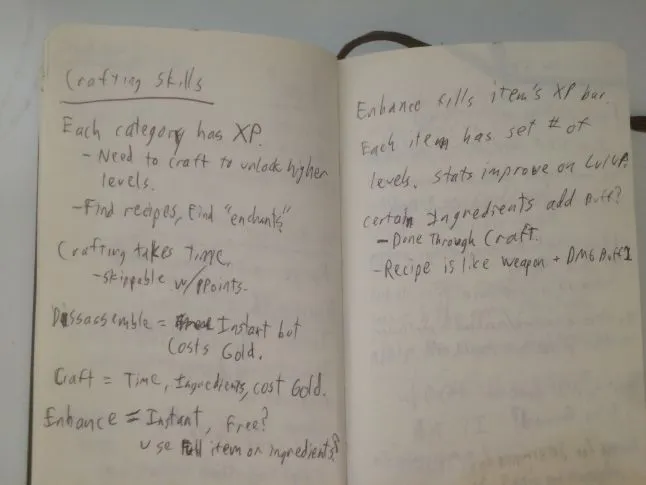 Crafting Skills
Each category has XP.
- Need to craft to unlock higher
levels.
- Find recipes, Find "enchants"
Crafting takes time.
- skippable w/ PPoints.
Dissassemble = Instant but
Costs Gold.
Craft = Time, Ingredients, cost Gold.
Enhance = Instant, Free?
Use Full item or ingredients?
Enhance fills item's XP bar.
Each item has set # of
levels. Stats improve on LvlUP.
Certain Ingredients add Buff?
- Done Through Craft.
- Recipe is like weapon + DMG Buff 1